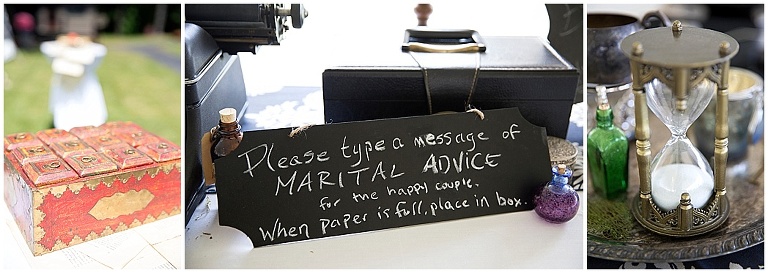 Please type a message of
MARITAL ADVICE
for the happy couple.
When paper is full, place in box.